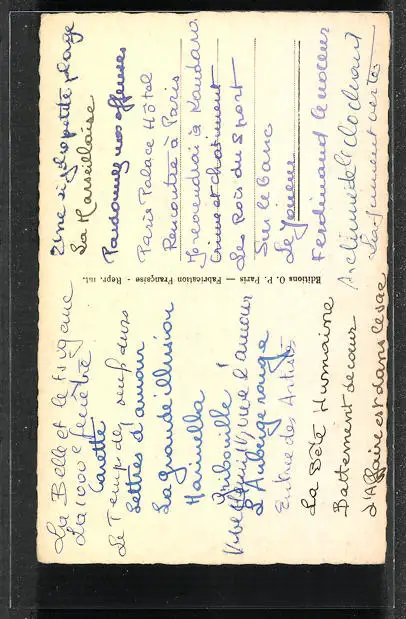 Une si jolie petite plage
La Marseillaise
Pardonnez nos offenses
Paris Palace Hôtel
Rencontre à Paris
Je reviendrai à Kandara
Crime et chatiment
Les Rois du Sport
Sur le banc
Le Joueur
Ferdinand le noceur
Archimède le clochard
La jument verte
Editions O. P. Paris — Fabrication Française - Repr. int.
La Belle et le tzigane
La 1000e fenêtre
Carette
Le Temps des oeufs durs
Lettres d'amour
La grande illusion
Marinella
Gribouille
Vive Henri IV vive l'amour
L'Auberge rouge
Entrée des Artistes
La Bête Humaine
Battement de coeur
L'Affaire est dans le sac